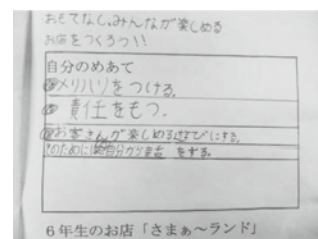 おもてなし。みんなが楽しめる
お店をつくろう!!
自分のめあて
メリハリをつける。
責任をもつ。
お客さんが楽しめる遊びにする。
そのために自分から をする。
6年生のお店「さまぁ～ランド」